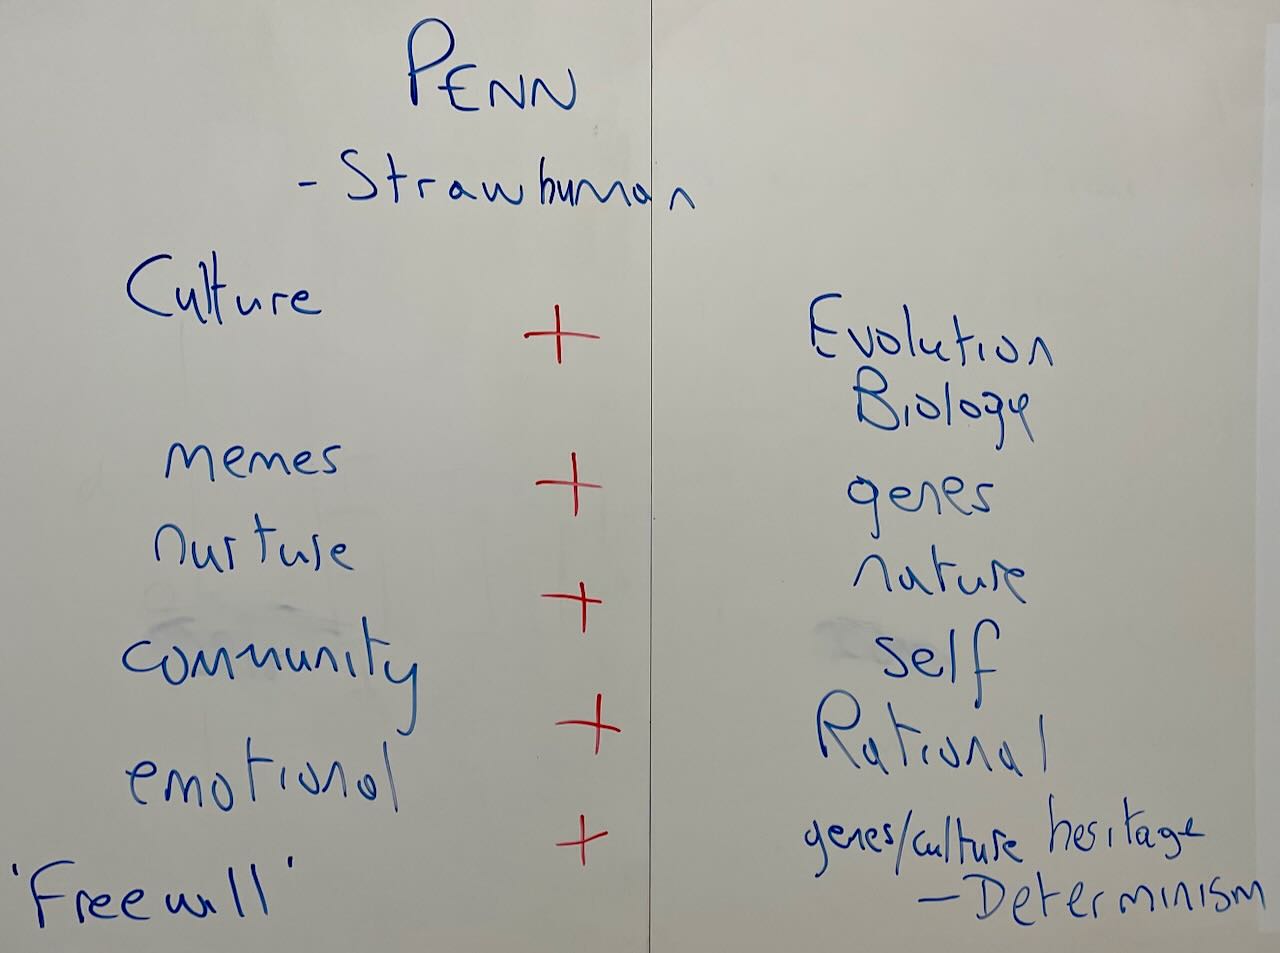 PENN
- Strawhuman
Culture + Evolution
Biology
memes + genes
nurture + nature
community + self
emotional + Rational
'Free will' genes/culture heritage
— Determinism